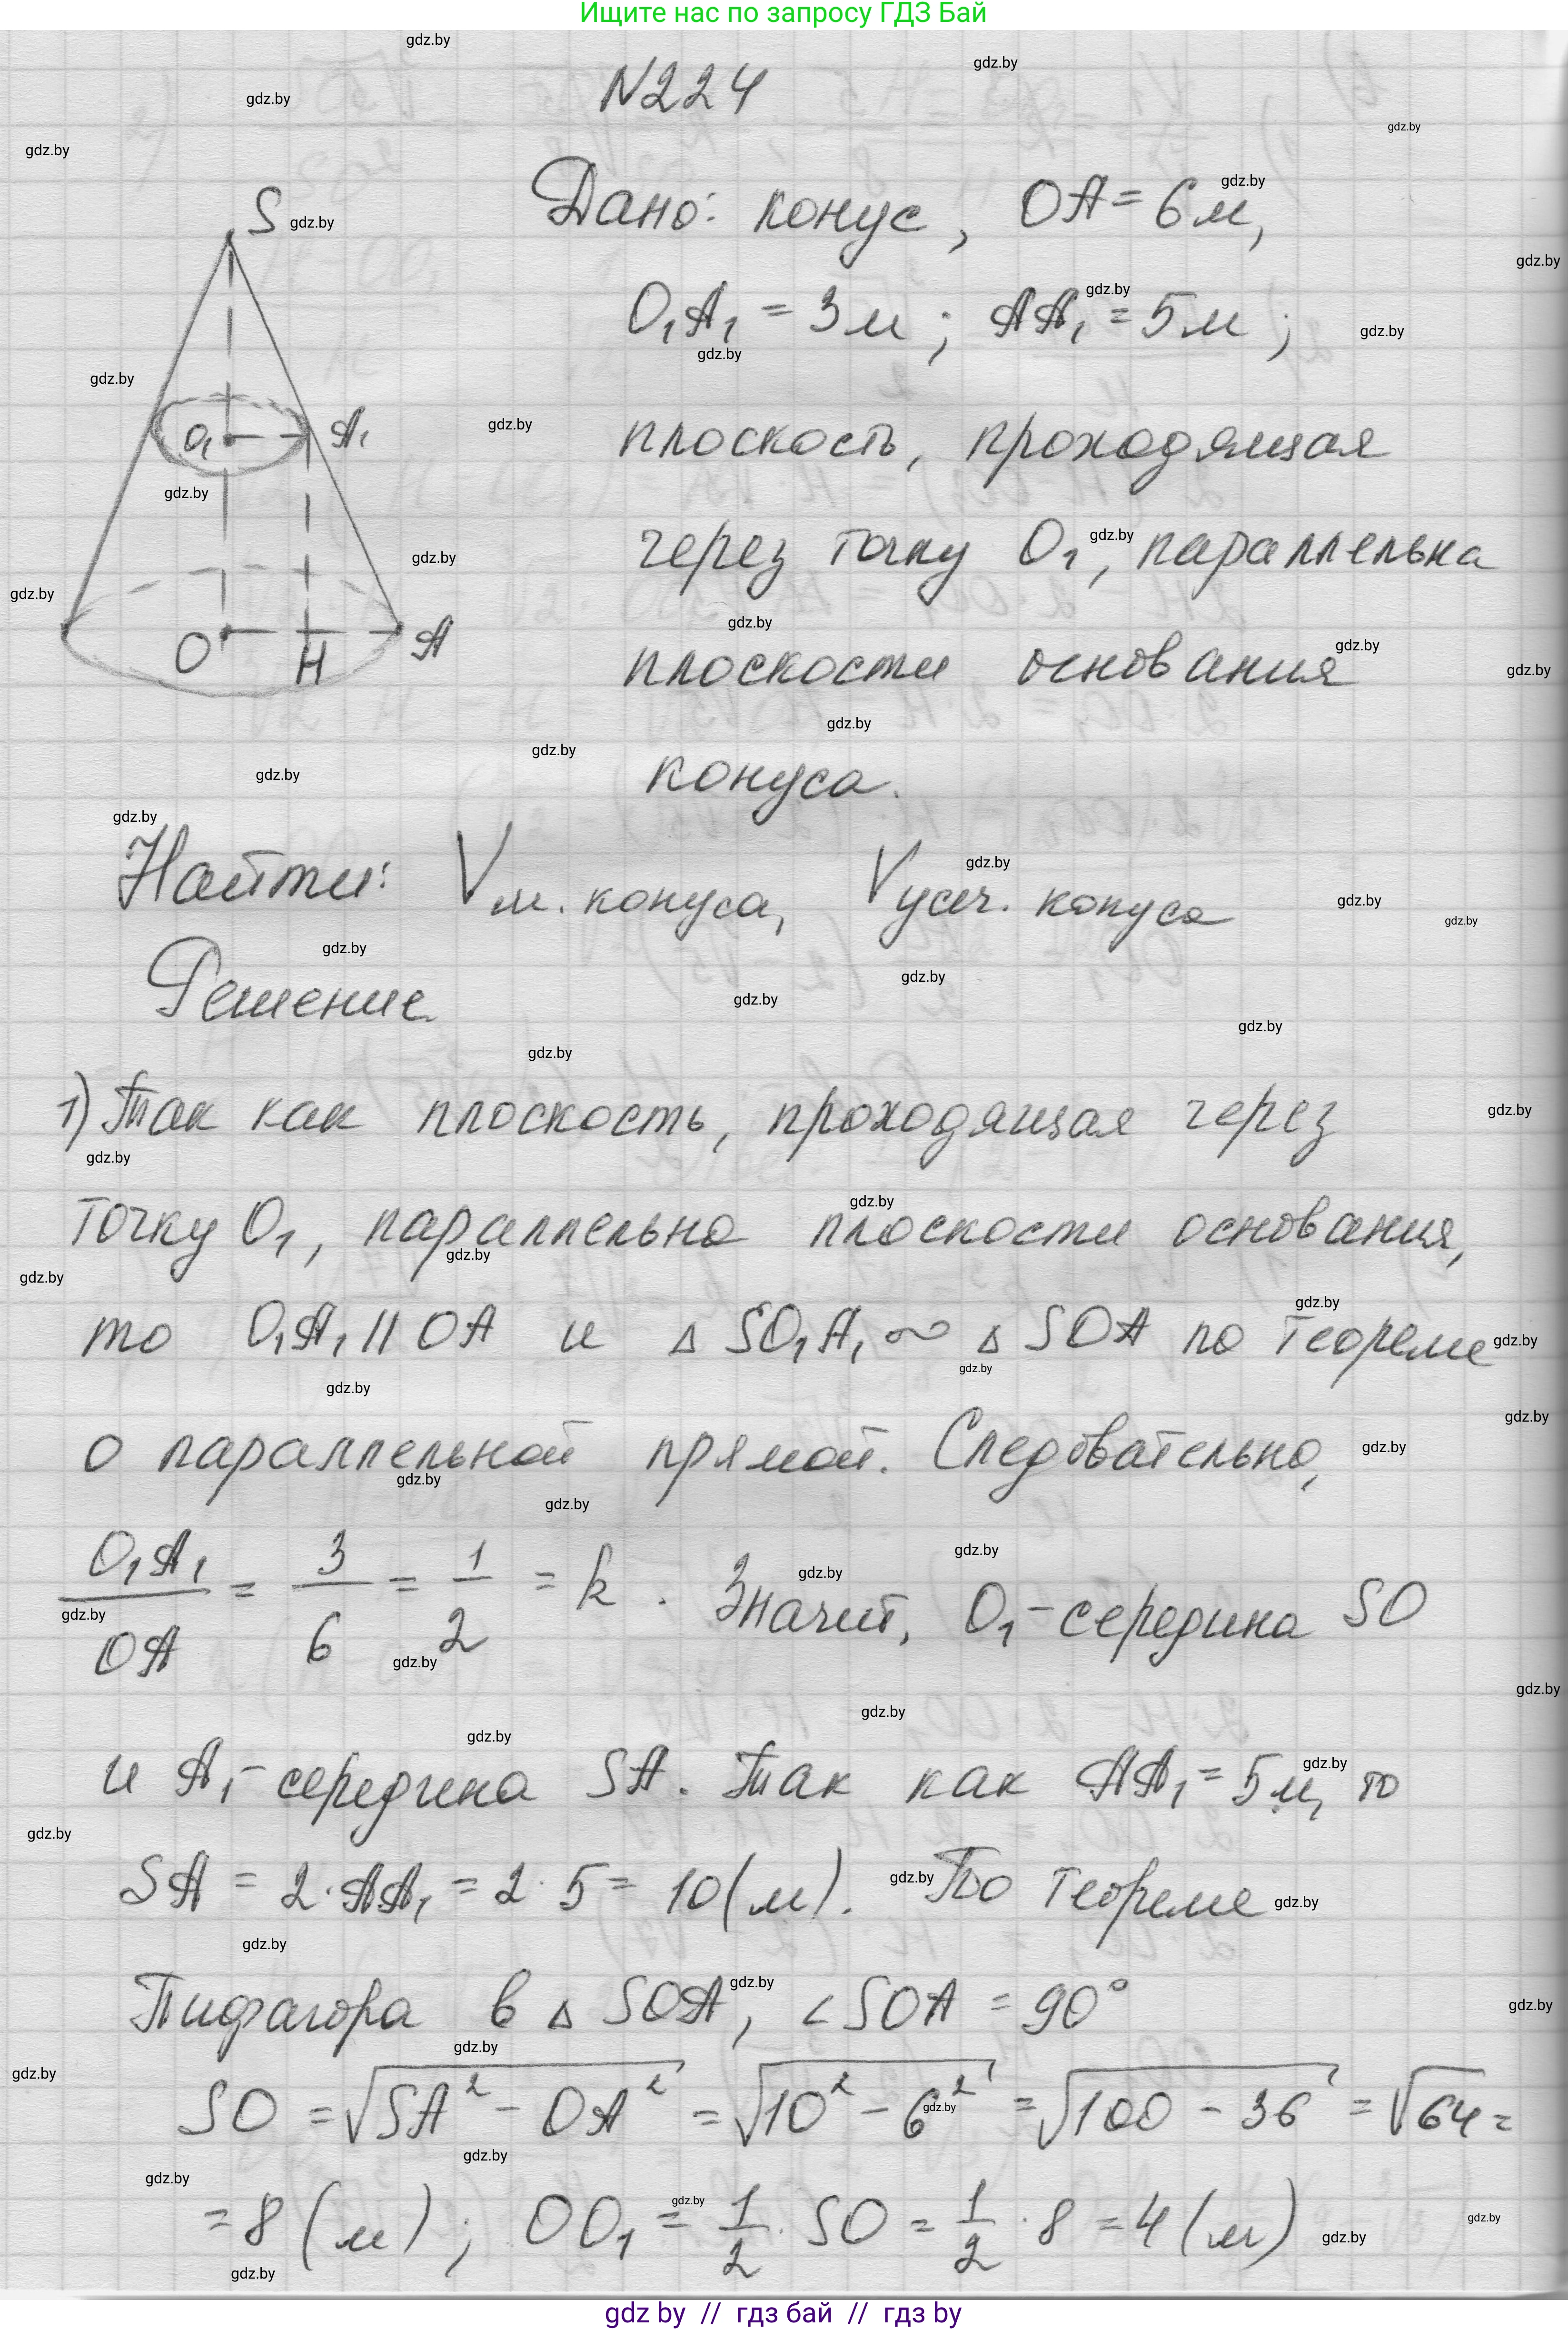 Ищите нас по запросу ГДЗ Бай
N224
Дано: конус, OA = 6м,
O₁A₁ = 3м; AA₁ = 5м;
плоскость, проходящая
через точку O₁, параллельна
плоскости основания
конуса.
S
O₁ A₁
O H A
Найти: V м. конуса, V усеч. конуса
Решение
1) Так как плоскость, проходящая через
точку O₁, параллельна плоскости основания,
то O₁A₁ || OA и △ SO₁A₁ ∞ △ SOA по теореме
о параллельной прямой. Следовательно,
O₁A₁/OA = 3/6 = 1/2 = k. Значит, O₁ - середина SO
и A₁ - середина SA. Так как AA₁ = 5м, то
SA = 2·AA₁ = 2·5 = 10(м). По теореме
Пифагора в △ SOA, ∠SOA = 90°
SO = √(SA² - OA²) = √(10² - 6²) = √(100 - 36) = √64 =
= 8 (м); OO₁ = 1/2 · SO = 1/2 · 8 = 4 (м)
gdz by // гдз бай // гдз by